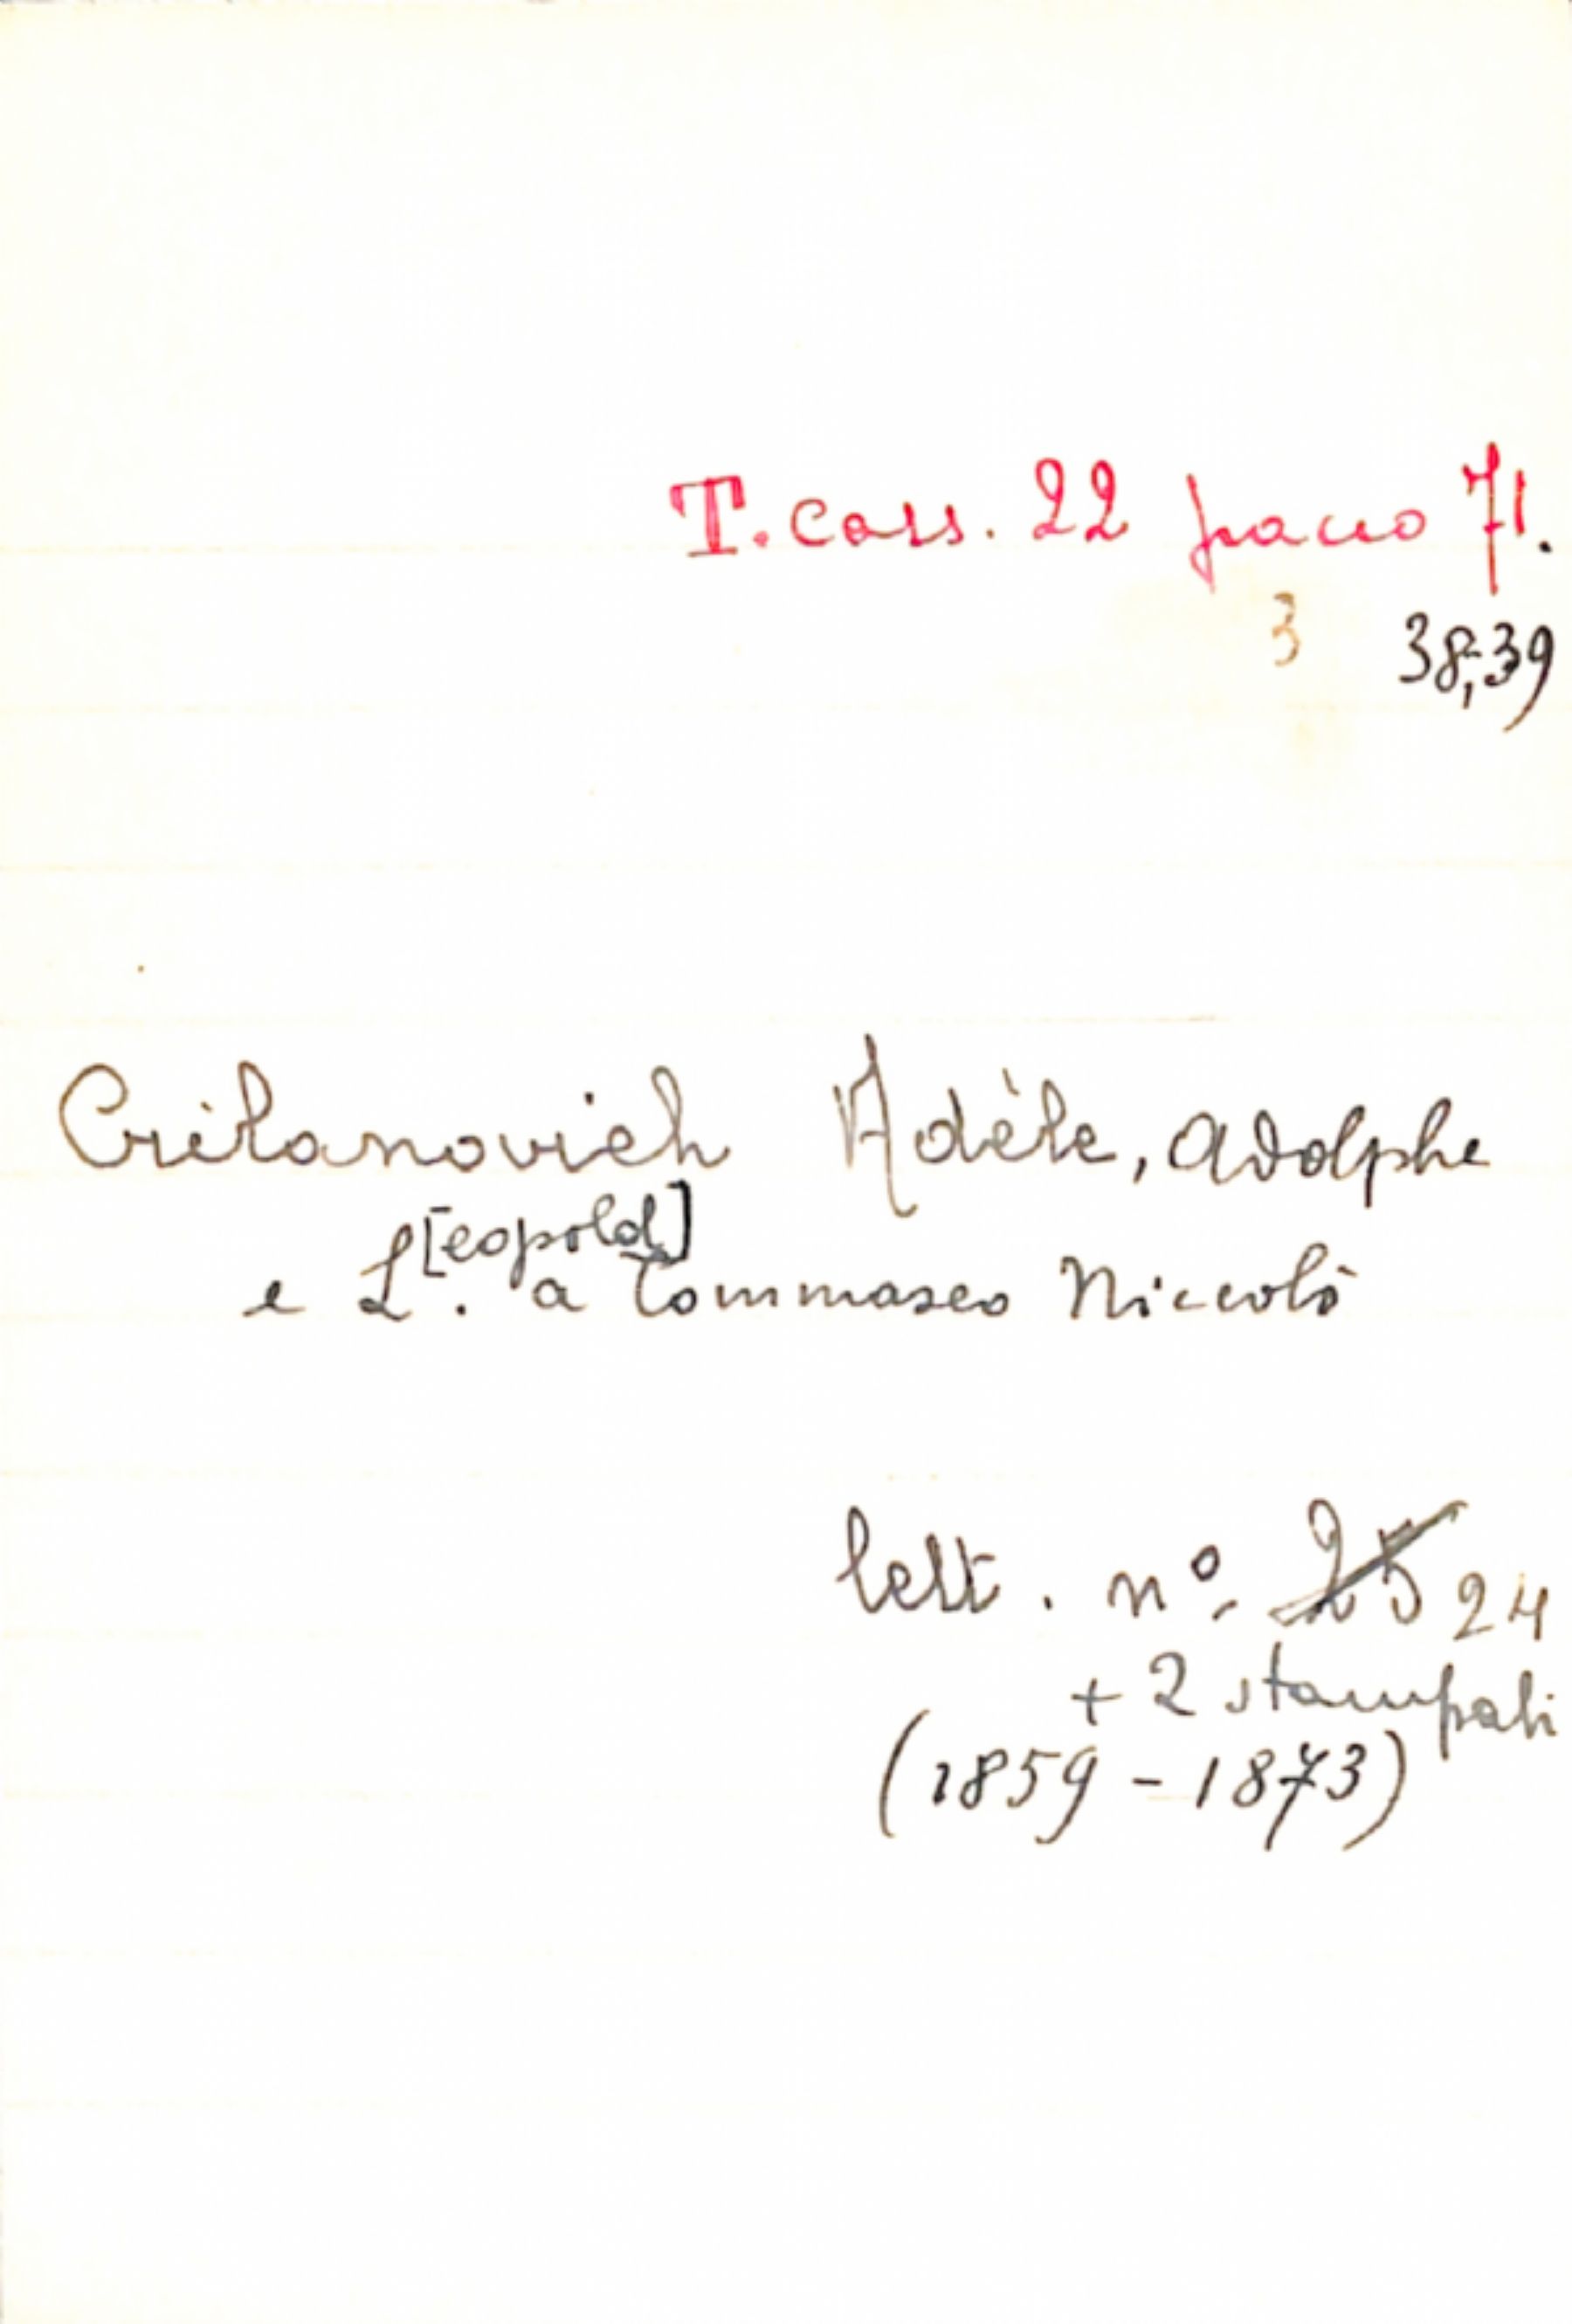 T. cass. 22 pacco 71.
3 38;39
Crilanovich Adèle, Adolphe
e L[eopold]. a Tommaseo Niccolò
lett. nº. 25 24
+ 2 stampati
(1859-1873)